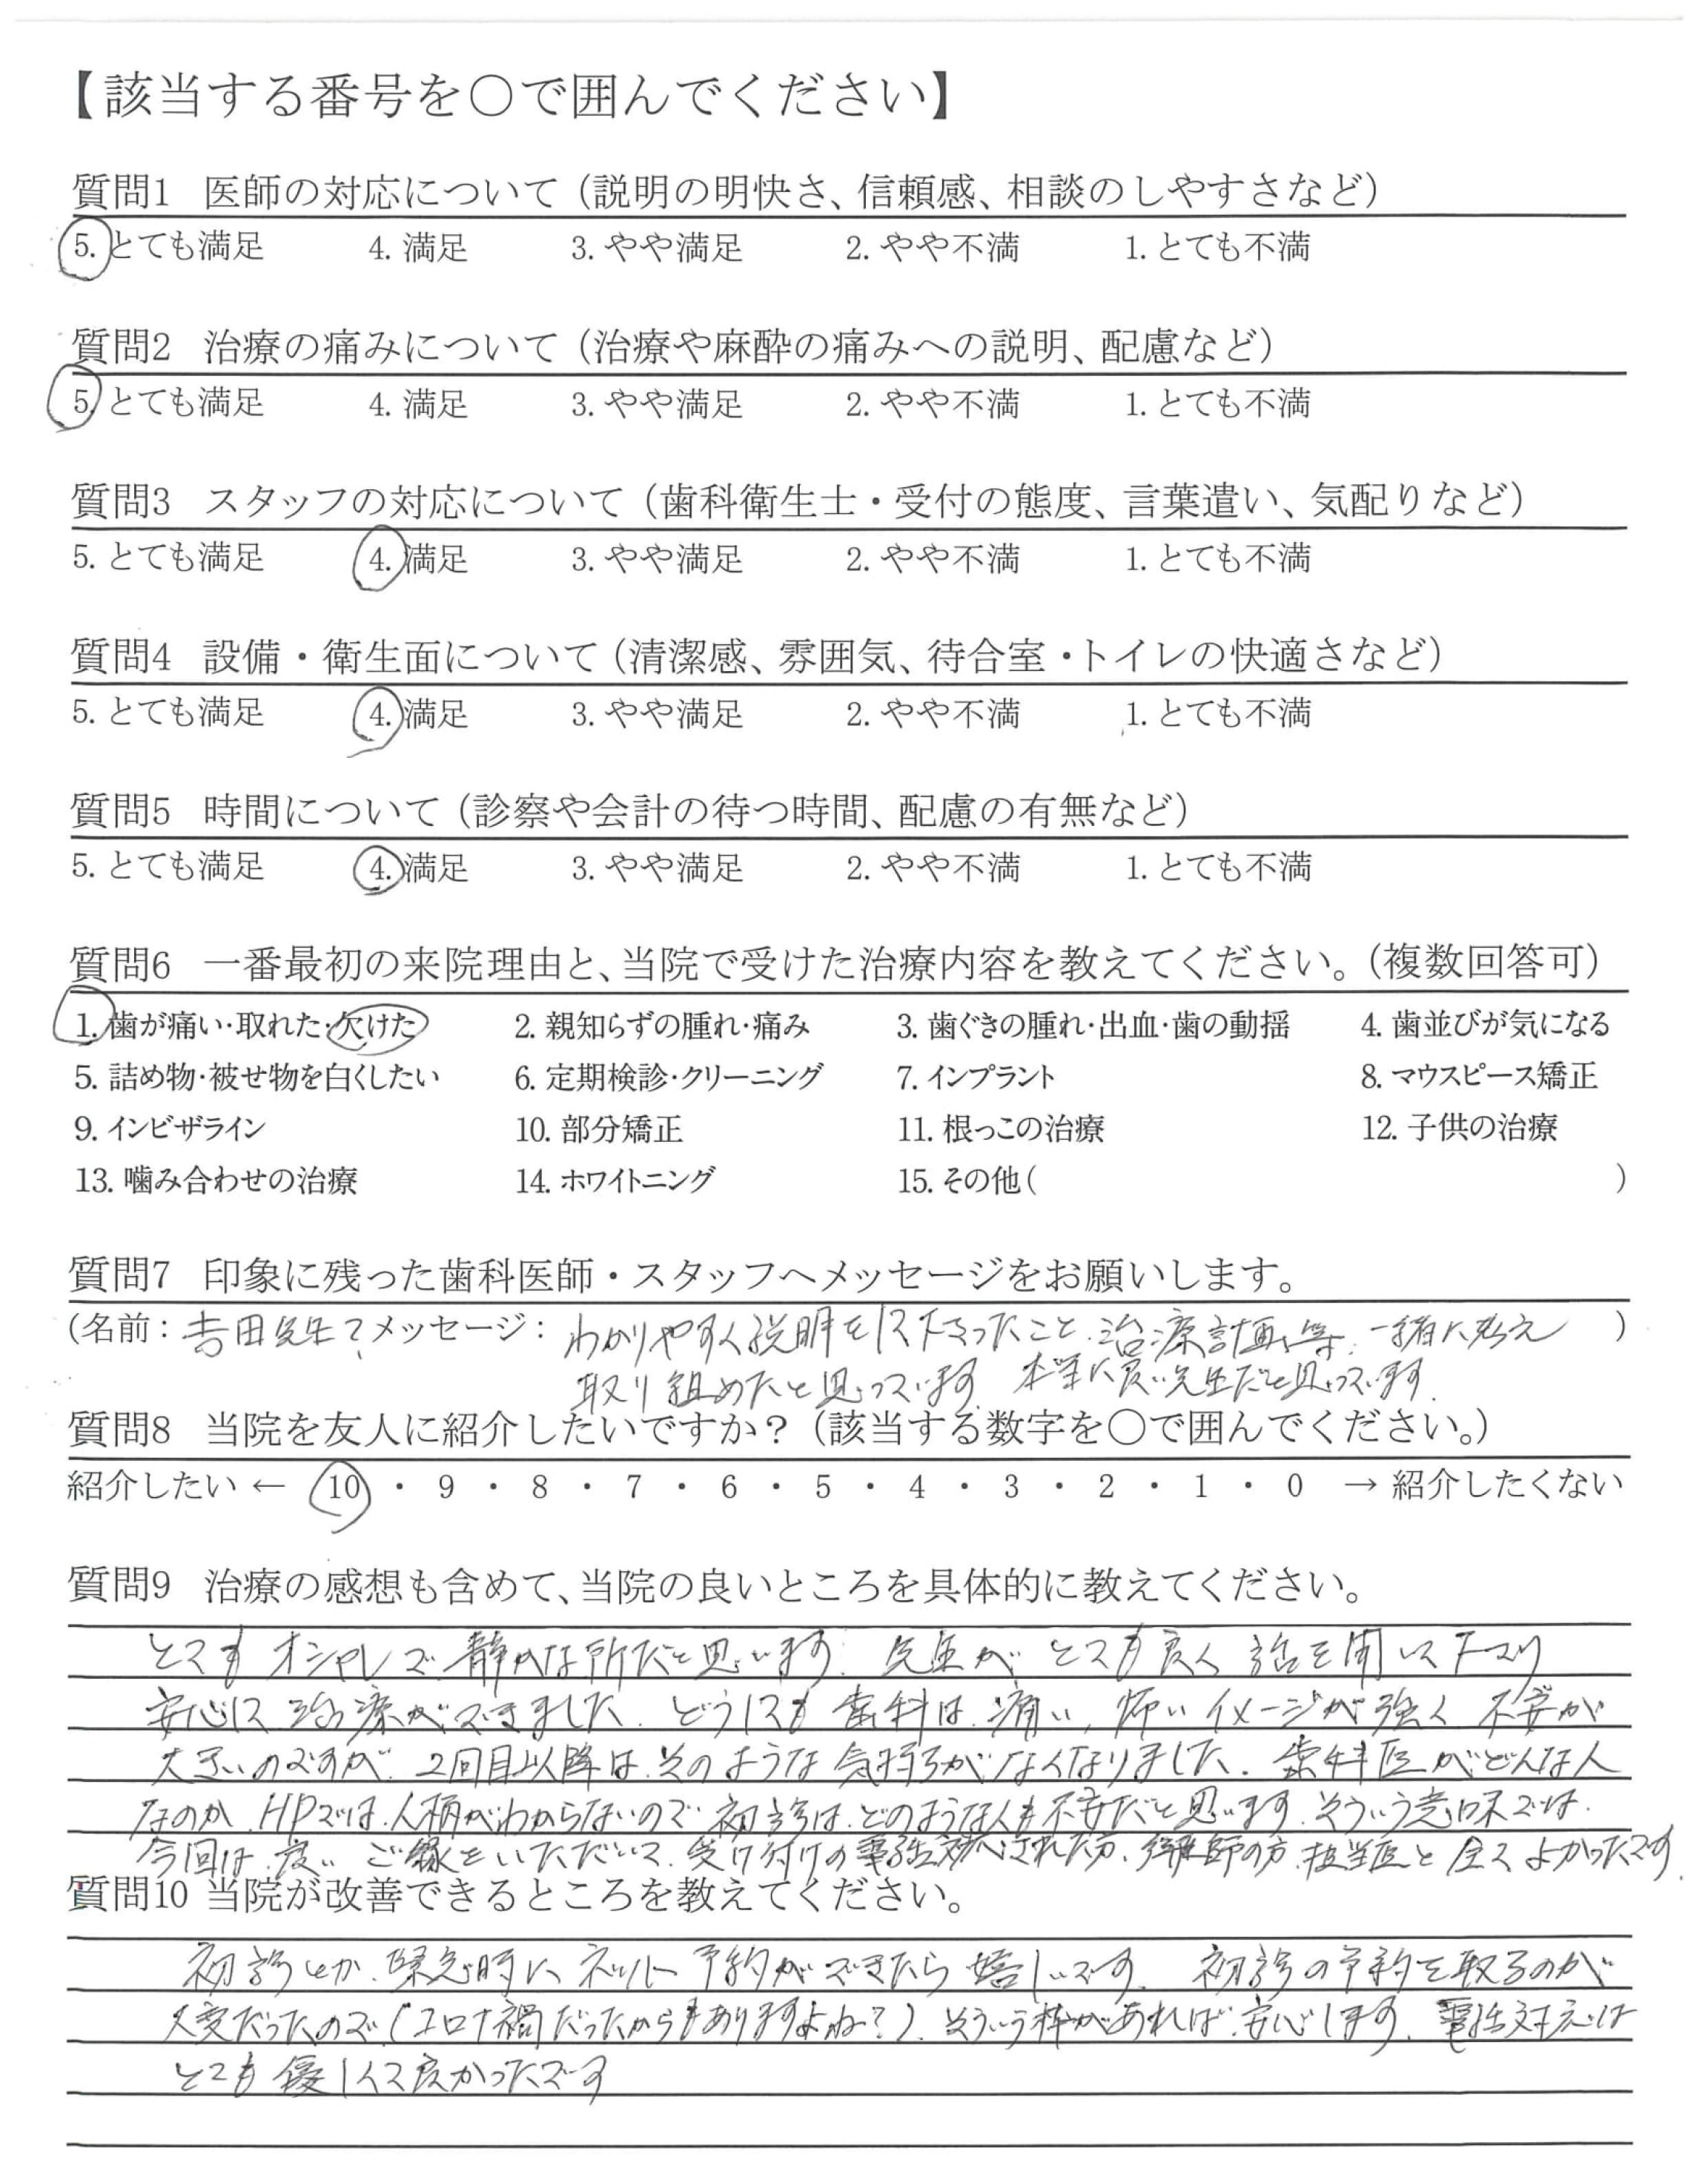 【該当する番号を〇で囲んでください】
質問1 医師の対応について（説明の明快さ、信頼感、相談のしやすさなど）
5. とても満足 4. 満足 3. やや満足 2. やや不満 1. とても不満
質問2 治療の痛みについて（治療や麻酔の痛みへの説明、配慮など）
5. とても満足 4. 満足 3. やや満足 2. やや不満 1. とても不満
質問3 スタッフの対応について（歯科衛生士・受付の態度、言葉遣い、気配りなど）
5. とても満足 4. 満足 3. やや満足 2. やや不満 1. とても不満
質問4 設備・衛生面について（清潔感、雰囲気、待合室・トイレの快適さなど）
5. とても満足 4. 満足 3. やや満足 2. やや不満 1. とても不満
質問5 時間について（診察や会計の待つ時間、配慮の有無など）
5. とても満足 4. 満足 3. やや満足 2. やや不満 1. とても不満
質問6 一番最初の来院理由と、当院で受けた治療内容を教えてください。（複数回答可）
1. 歯が痛い・取れた・欠けた 2. 親知らずの腫れ・痛み 3. 歯ぐきの腫れ・出血・歯の動揺 4. 歯並びが気になる
5. 詰め物・被せ物を白くしたい 6. 定期検診・クリーニング 7. インプラント 8. マウスピース矯正
9. インビザライン 10. 部分矯正 11. 根っこの治療 12. 子供の治療
13. 噛み合わせの治療 14. ホワイトニング 15. その他（ ）
質問7 印象に残った歯科医師・スタッフへメッセージをお願いします。
（名前：吉田先生？ メッセージ：わかりやすく説明をして下さったこと、治療計画等、一緒に考え ）
取り組めたと思っています。本当に良い先生だと思っています。
質問8 当院を友人に紹介したいですか？（該当する数字を〇で囲んでください。）
紹介したい ← 10 ・ 9 ・ 8 ・ 7 ・ 6 ・ 5 ・ 4 ・ 3 ・ 2 ・ 1 ・ 0 → 紹介したくない
質問9 治療の感想も含めて、当院の良いところを具体的に教えてください。
とてもオシャレで静かな所だと思います。先生がとても良く話を聞いて下さり
安心して治療ができました。どうしても歯科は、痛い、怖いイメージが強く不安が
大きいのですが、2回目以降は、そのような気持ちがなくなりました。歯科医がどんな人
なのか、HPでは、人柄がわからないので、初診は、どのような人も不安だと思います。そういう意味では、
今回は、良いご縁をいただいて、受け付けの電話対応された方、衛生師の方、担当医と全てよかったです。
質問10 当院が改善できるところを教えてください。
初診とか、緊急時に、ネット予約ができたら嬉しいです。初診の予約を取るのが
大変だったので（コロナ禍だったからもありますよね？）、そういう枠があれば、安心します。電話対応は
とても優しくて良かったです